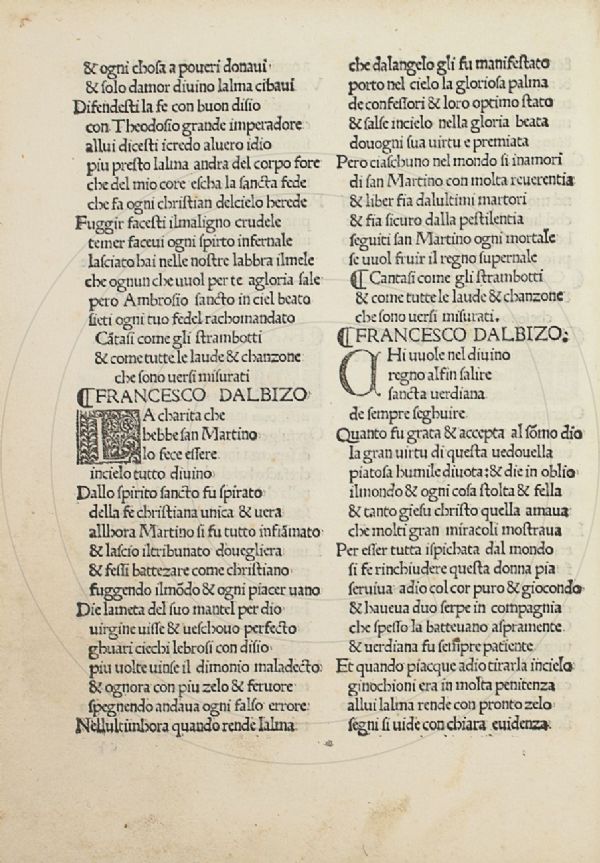 & ogni chosa a poueri donaui
& solo damor diuino lalma cibaui
Difendesti la fe con buon disio
con Theodosio grande imperadore
allui dicesti icredo aluero idio
piu presto lalma andra del corpo fore
che del mio core escha la sancta fede
che fa ogni christian delcielo herede
Fuggir facesti ilmaligno crudele
temer faceui ogni spirto infernale
lasciato hai nelle nostre labbra ilmele
che ognun che uuol per te agloria sale
pero Ambrosio sancto in ciel beato
sieti ogni tuo fedel rachomandato
Cātasi come gli strambotti
& come tutte le laude & chanzone
che sono uersi misurati
¶FRANCESCO DALBIZO
LA charita che
hebbe san Martino
lo fece essere
incielo tutto diuino
Dallo spirito sancto fu spirato
della fe christiana unica & uera
allhora Martino si fu tutto infiāmato
& lascio iltribunato douegliera
& fessi battezare come christiano
fuggendo ilmōdo & ogni piacer uano
Die lameta del suo mantel per dio
uirgine uisse & ueschouo perfecto
ghuari ciechi lebrosi con disio
piu uolte uinse il dimonio maladecto
& ognora con piu zelo & feruore
spegnendo andaua ogni falso errore
Nellultimhora quando rende lalma
che dalangelo gli fu manifestato
porto nel cielo la gloriosa palma
de confessori & loro optimo stato
& salse incielo nella gloria beata
douogni sua uirtu e premiata
Pero ciaschuno nel mondo si inamori
di san Martino con molta reuerentia
& liber fia dalultimi martori
& fia sicuro dalla pestilentia
seguiti san Martino ogni mortale
se uuol fruir il regno supernale
¶ Cantasi come gli strambotti
& come tutte le laude & chanzone
che sono uersi misurati.
¶FRANCESCO DALBIZO:
CHi uuole nel diuino
regno alfin salire
sancta uerdiana
de sempre seghuire
Quanto fu grata & accepta al sōmo dio
la gran uirtu di questa uedouella
piatosa humile diuota: & die in oblio
ilmondo & ogni cosa stolta & fella
& tanto giesu christo quella amaua
che molti gran miracoli mostraua
Per esser tutta ispichata dal mondo
si fe rinchiudere questa donna pia
seruiua adio col cor puro & giocondo
& haueua duo serpe in compagnia
che spesso la batteuano aspramente
& uerdiana fu sempre patiente
Et quando piacque adio tirarla incielo
ginochioni era in molta penitenza
allui lalma rende con pronto zelo
segni si uide con chiara euidenza